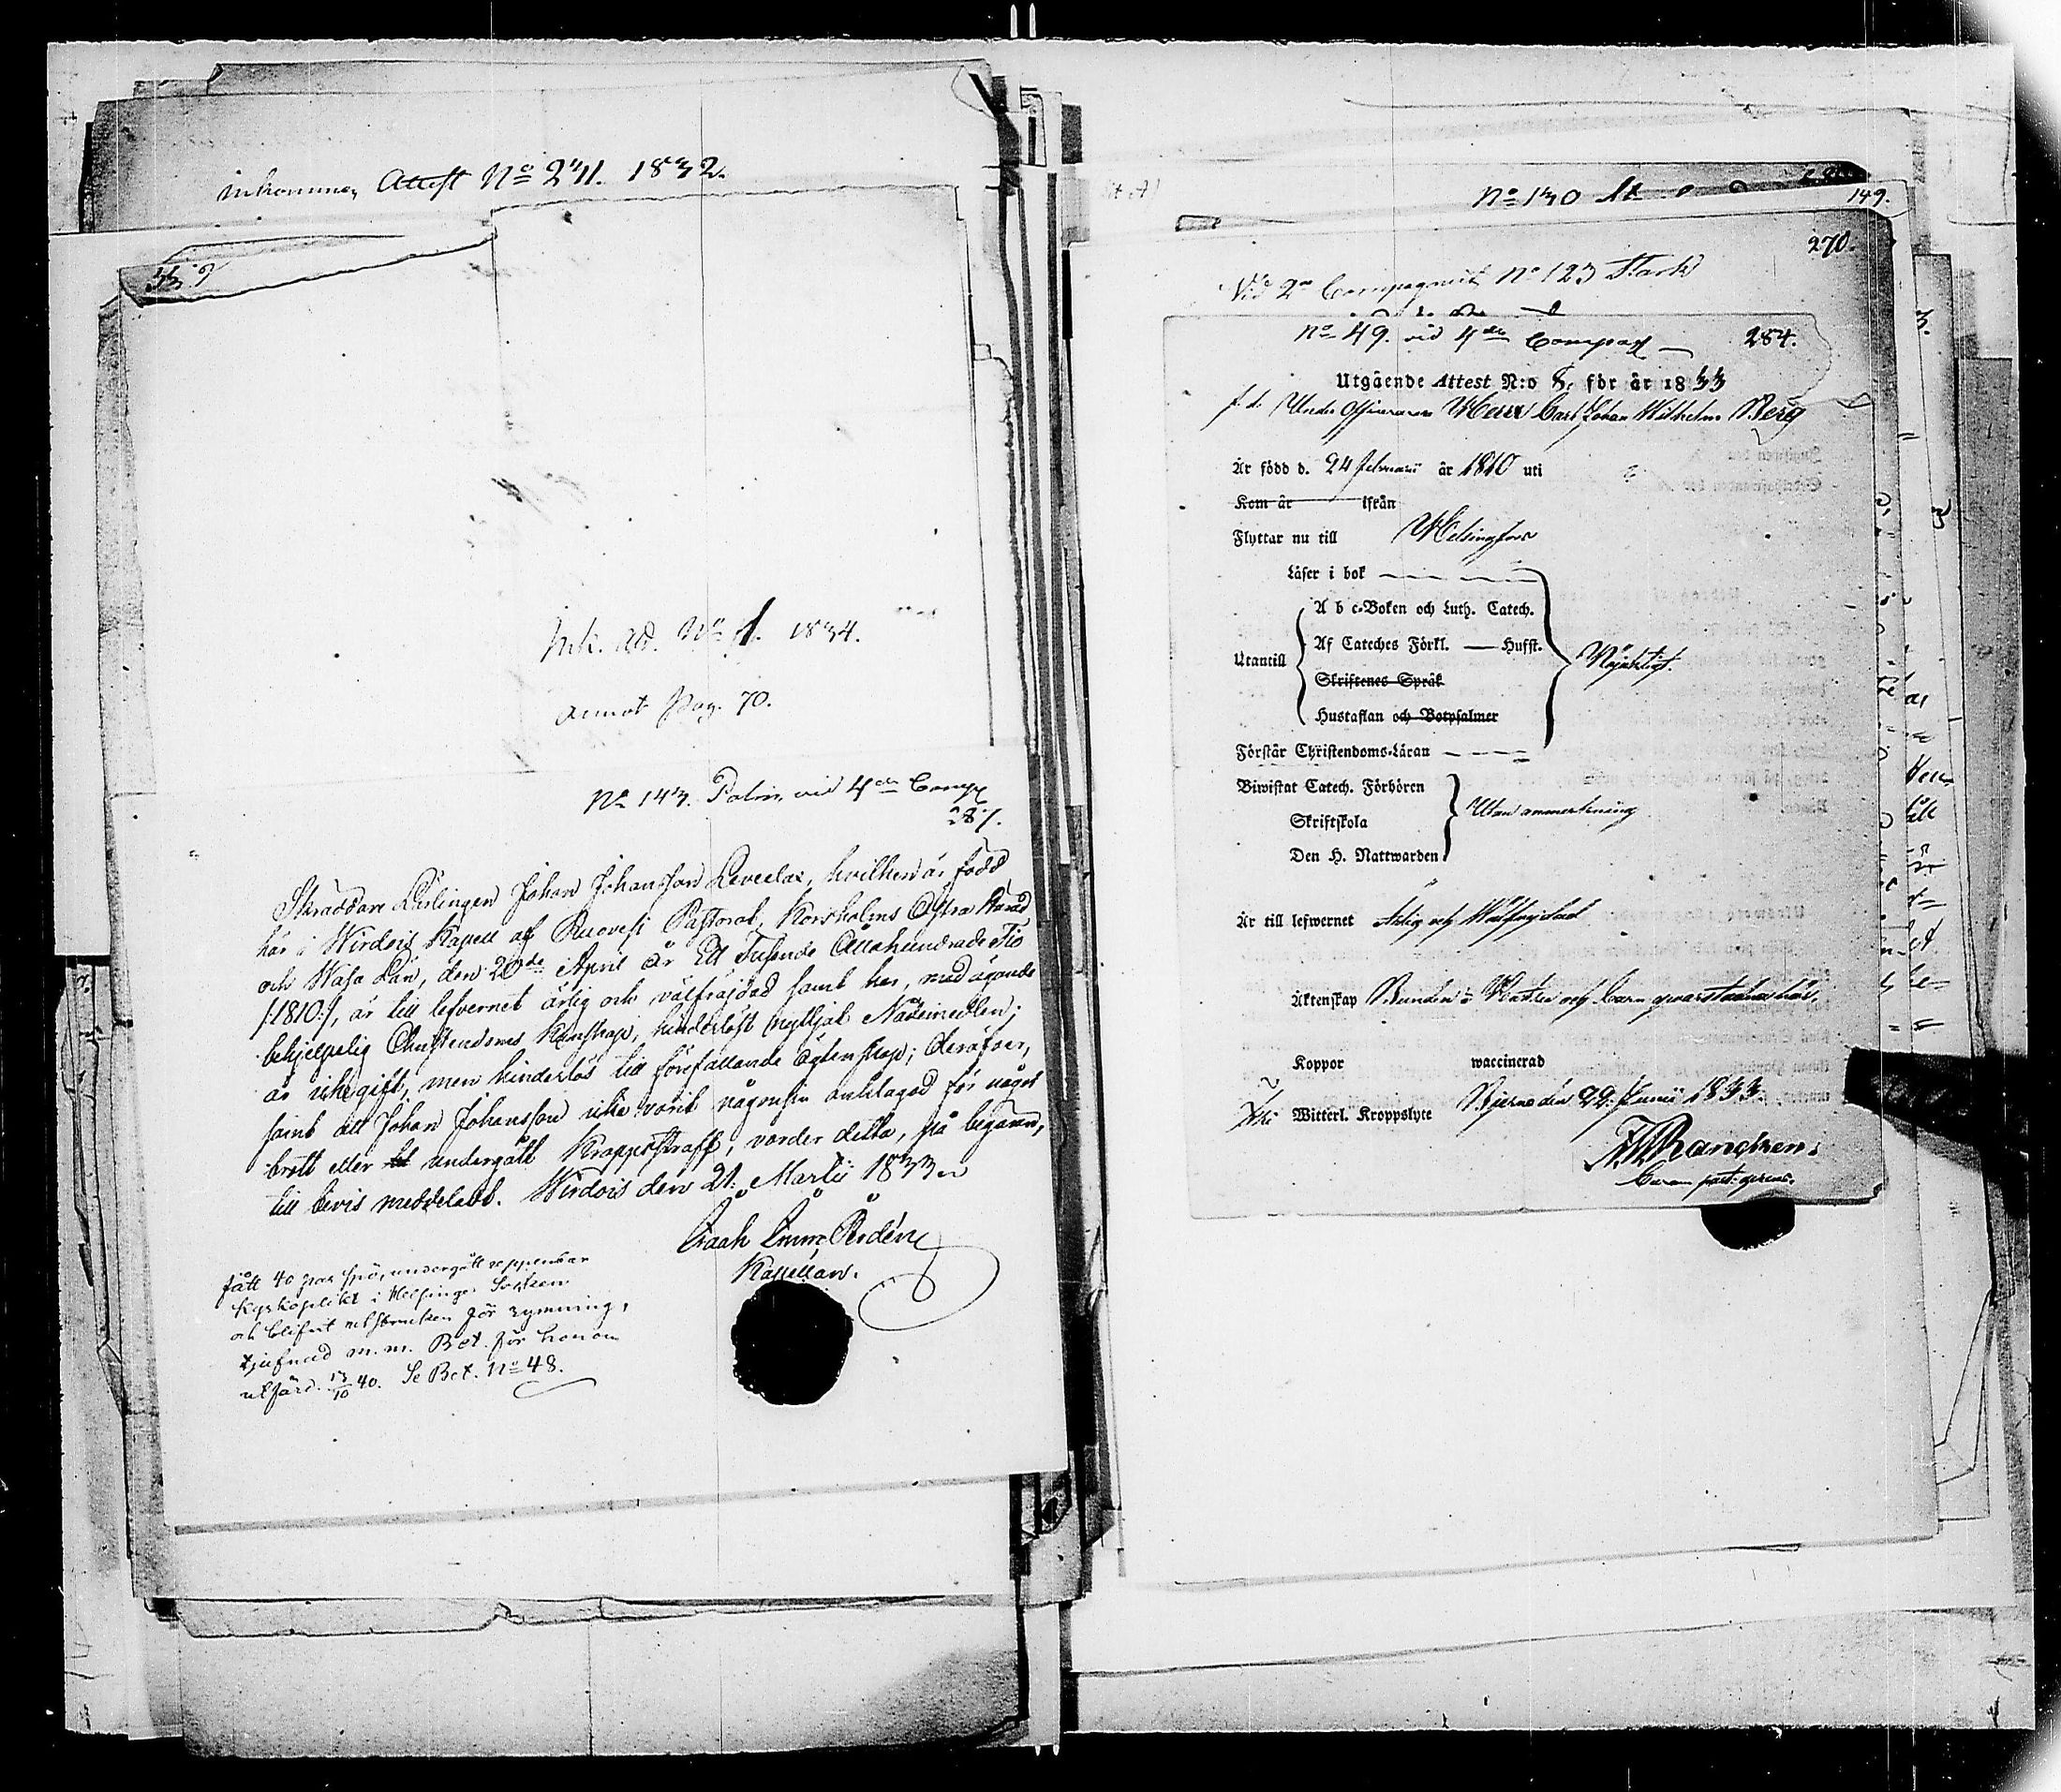 inkommen Attest No 271. 1832.
Ink. Ad. No 1. 1834.
annot Pag. 70.
No 143. Palin, vid 4de Comp
287.
Skräddare Lärlingen Johan Johansson Leveelax, hvilken är född
här i Wirdois Kapell af Ruovesi Pastorat, Korsholms Östra Härad
och Wasa Län, den 20de April år Ett Tusende Åttahundrade Tio
/:1810:/, är till lefvernet ärlig och välfräjdad samt har, med ägande
behjelpelig Christendoms Kunskap, hinderlöst nyttjat Nådemedlen;
är icke gift, men hinderlös till förefallande ägtenskap; derofver,
samt att Johan Johansson icke varit någonsin anklagad för något
brott eller undergått Kroppsstraff, varder detta, på begäran,
till bevis meddeladt. Wirdois den 21. Martii 1833
Isaak Rodén
Kapellan.
fått 40 par spö, undergått uppenbar
kyrkoplikt i Helsinge Socken
och blifvit utstruken för rymning,
tjufnad m. m. Bet. för honom
utfärd. 13/10 40. Se Bet. No 48.
No 130
149.
270.
Vid 2a Compagniet No 123 Stark
No 49. vid 4de Compag
284.
Utgående Attest N:o 8, för år 1833
f. d. Under Officeraren Herr Carl Johan Wilhelm Berg
Är född d. 24 februarii år 1810 uti
Kom år ifrån
Flyttar nu till Helsingfors
Läser i bok
A b c-Boken och Luth. Catech.
Af Cateches Förkl. — Husst.
Utantill
Nöjaktigt.
Skriftenes Språk
Hustaflan och Botpsalmer
Förstår Christendoms-Läran
Biwistat Catech. Förhören
Utan anmerkning
Skriftskola
Den H. Nattwarden
Är till lefwernet Ärlig och Wälfrejdad
Äktenskap Bunden: Hustru och barn qvarstadna här.
Koppor waccinerad
Witterl. Kroppslyte
Bjerno den 22. Junii 1833.